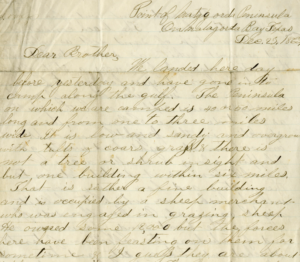 Point of Matagorda Peninsula
Matagorda Bay Texas
Dec 23, 186
Dear Brother,
We landed here day
before yesterday and have gone into
camp along the gulf. The Peninsula
on which we are camped is 50 miles
long and from one to three miles
wide. It is low and sandy and overgrown
with a coarse grass there is
not a tree or shrub in sight and
but one building within six miles.
That is rather a fine building
and is occupied by a sheep merchant
who was engaged in grazing sheep
He owned some but the forces
here have been feasting on them for
sometime